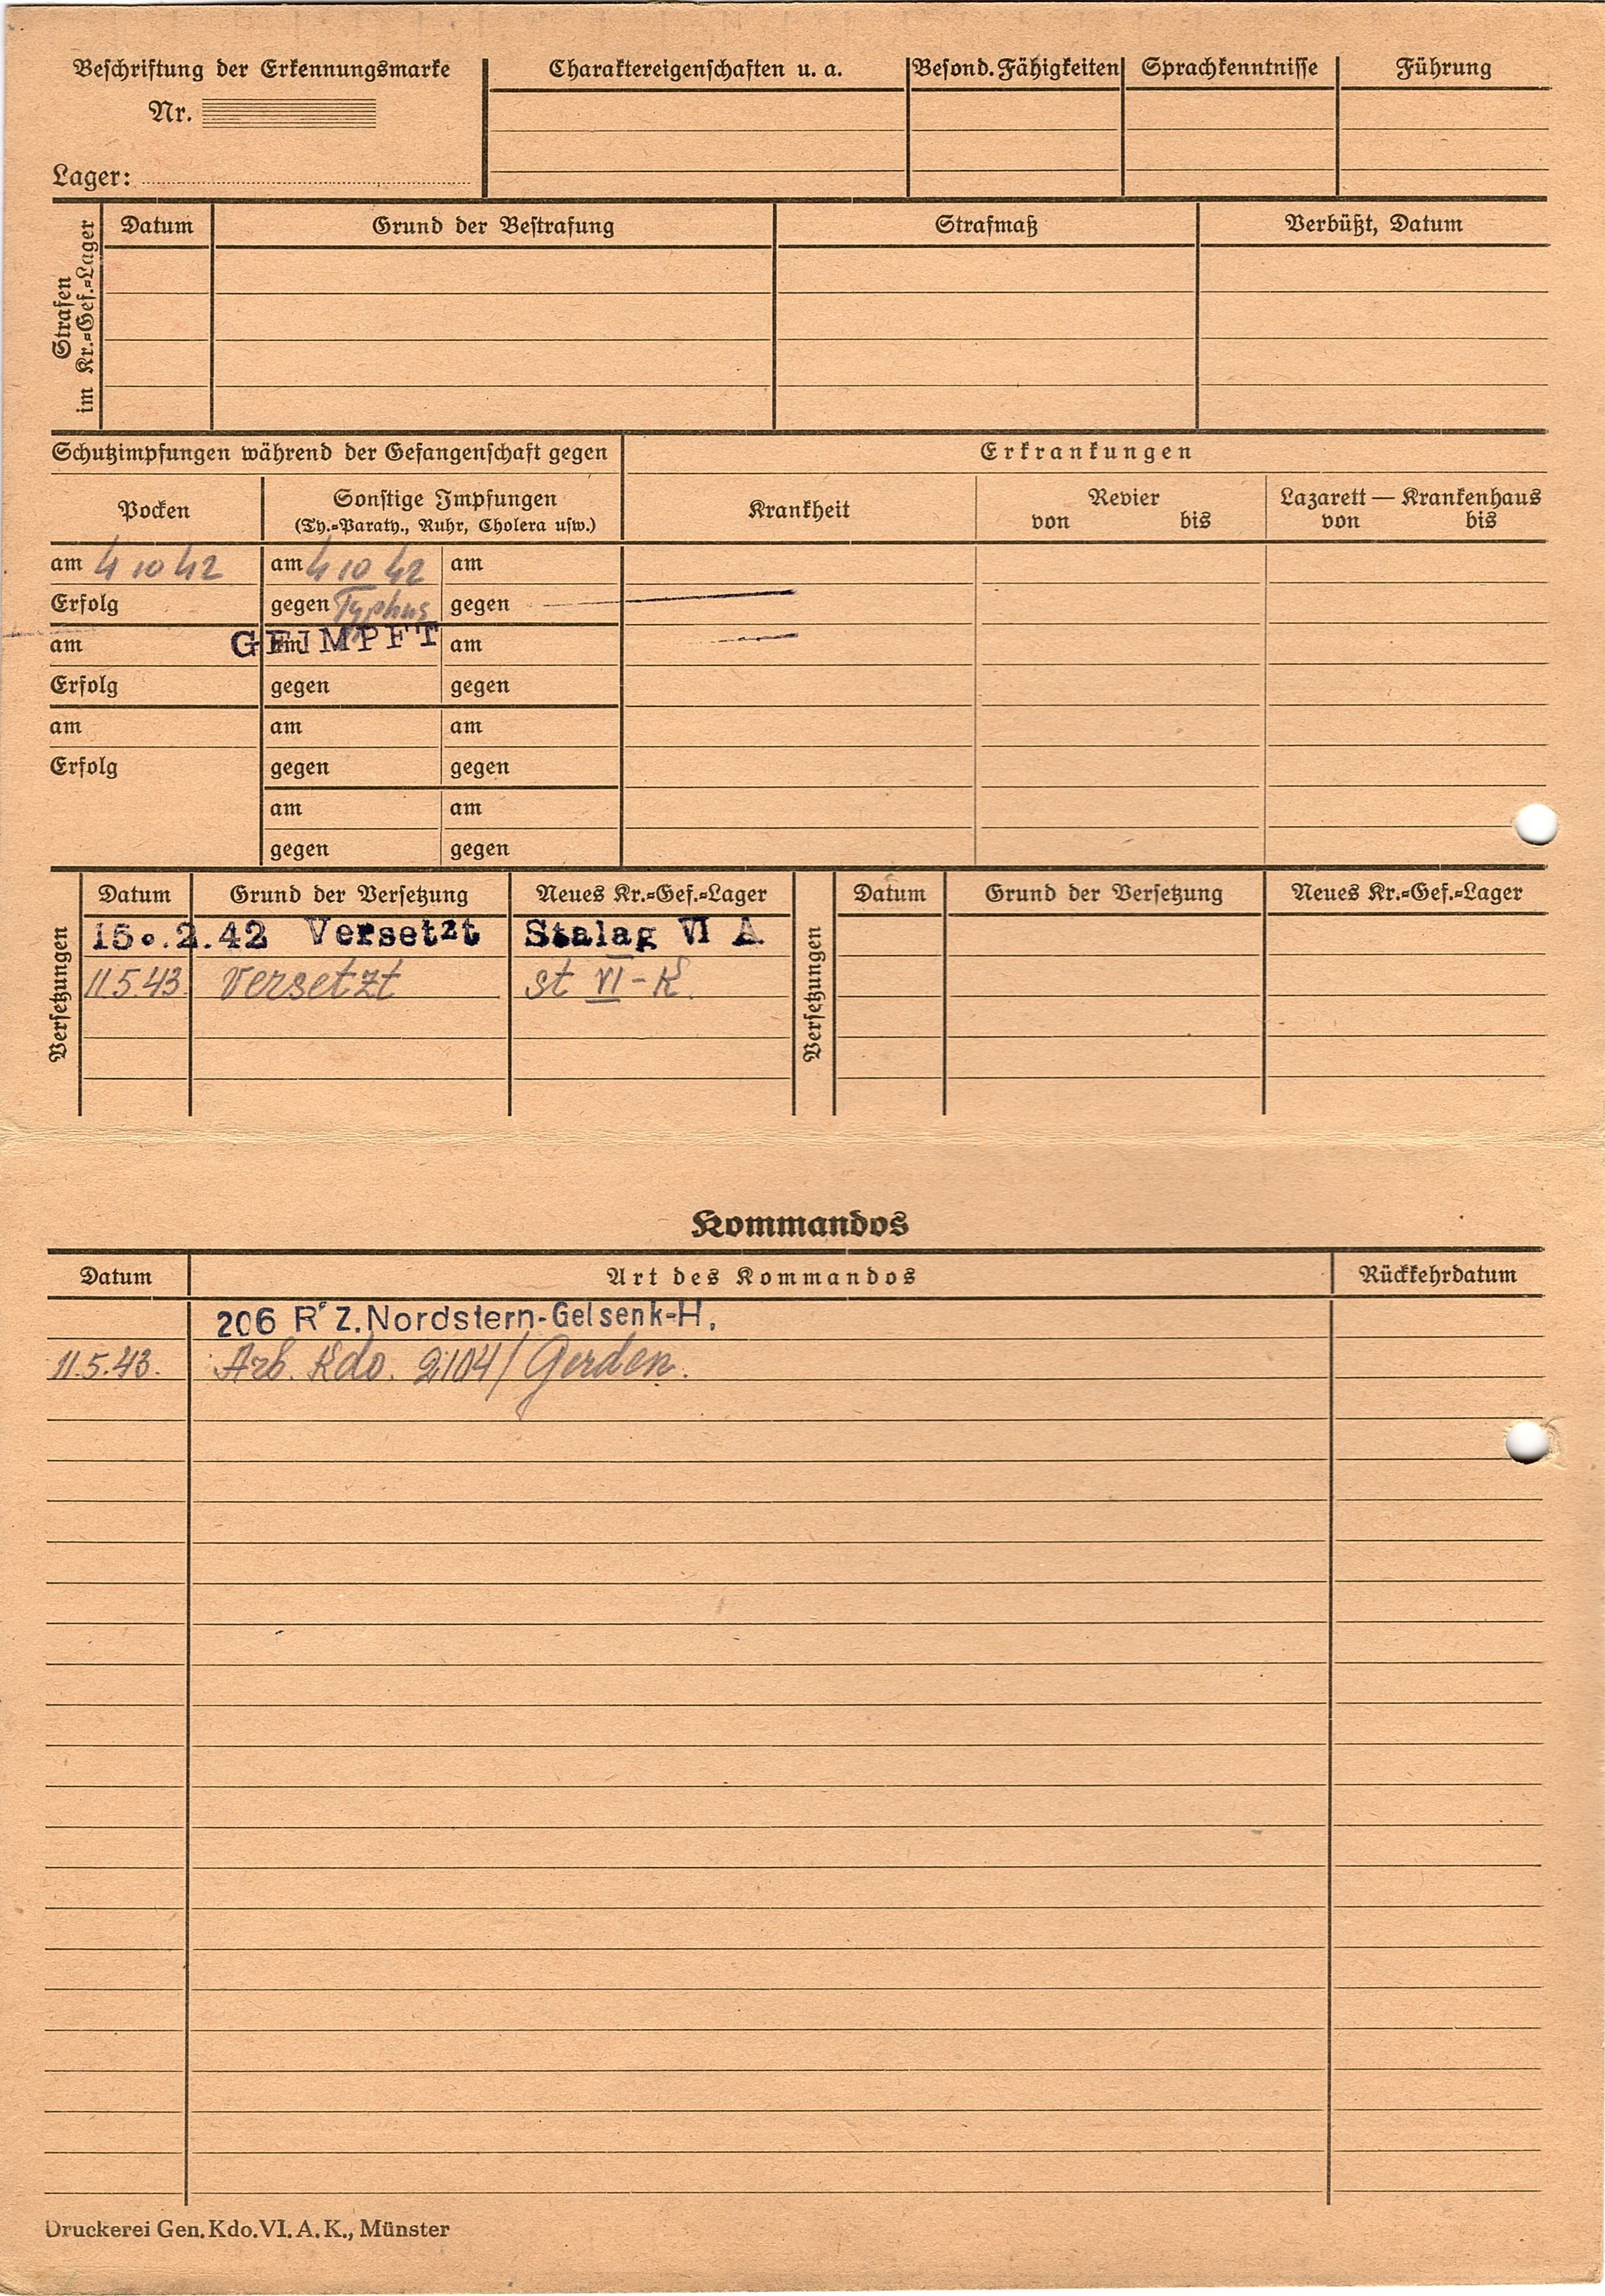 Beschriftung der Erkennungsmarke
Nr.
Lager:
Charaktereigenschaften u. a.
Besond. Fähigkeiten
Sprachkenntnisse
Führung
Strafen
im Kr.=Gef.=Lager
Datum
Grund der Bestrafung
Strafmaß
Verbüßt, Datum
Schutzimpfungen während der Gefangenschaft gegen
Erkrankungen
Pocken
Sonstige Impfungen
(Ty.=Paraty., Ruhr, Cholera usw.)
Krankheit
Revier
von bis
Lazarett — Krankenhaus
von bis
am 4 10 42 am 4 10 42 am
Erfolg gegen Typhus gegen
am am am
GEIMPFT
Erfolg gegen gegen
am am am
Erfolg gegen gegen
am am
gegen gegen
Versetzungen
Datum Grund der Versetzung Neues Kr.=Gef.=Lager
15.2.42 Versetzt Stalag VI A
11.5.43 versetzt st VI-K.
Versetzungen
Datum Grund der Versetzung Neues Kr.=Gef.=Lager
Kommandos
Datum Art des Kommandos Rückkehrdatum
206 R Z. Nordstern-Gelsenk-H.
11.5.43. Arb. Kdo. 2104/ Gerden.
Druckerei Gen. Kdo. VI. A. K., Münster